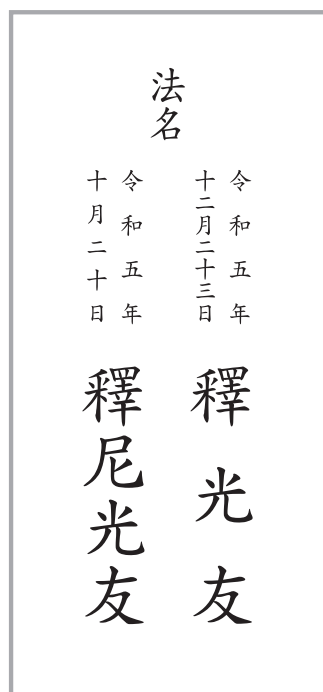 法名
令和五年
十二月二十三日
釋光友
令和五年
十月二十日
釋尼光友